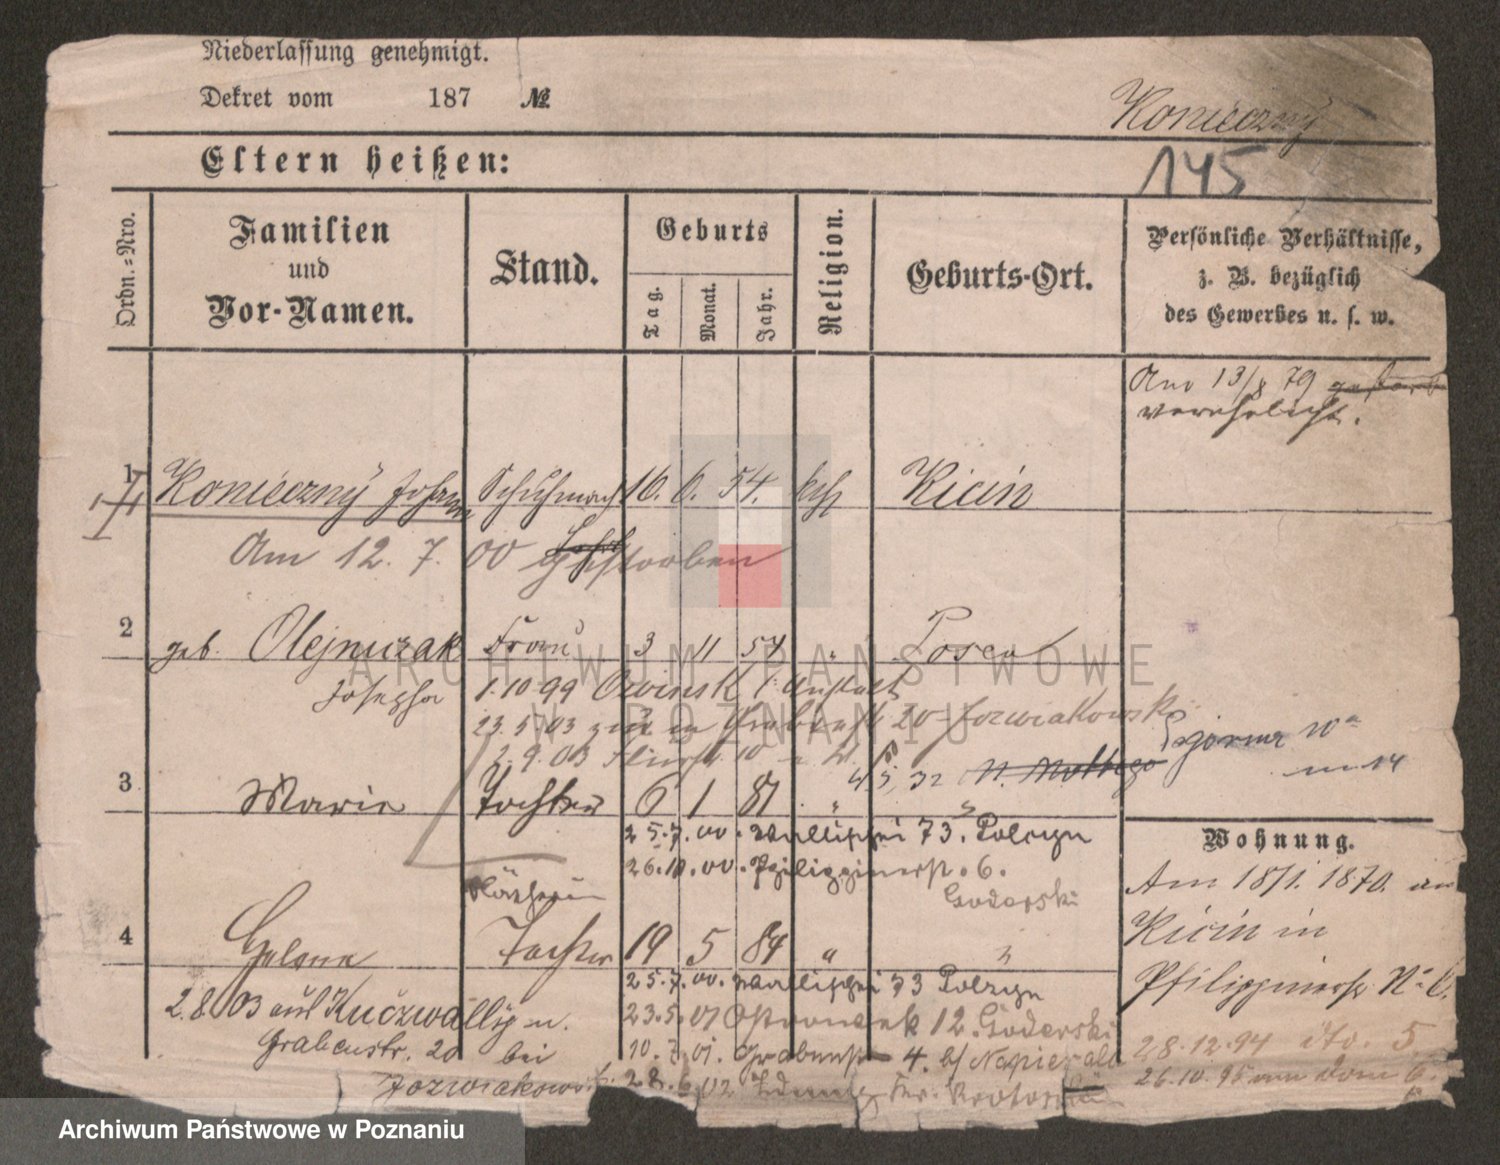 Niederlassung genehmigt.
Dekret vom 187 №
Konieczny
Eltern heißen:
145
Ordn.-Nro.
Familien
und
Vor-Namen.
Stand.
Geburts
Tag.
Monat.
Jahr.
Religion.
Geburts-Ort.
Persönliche Verhältnisse,
z. B. bezüglich
des Gewerbes u. s. w.
Am 13/8 79
verehelicht.
1 Konieczny Johann Schuhmach 16. 6. 54. kth Kicin
Am 12. 7. 00 Gestorben
2 geb. Olejniczak Frau 3 11 57 " Posen
Josepha 1.10 99 Owinsk
23.5.03 20 Jozwiakowski
2.9.03 10
4/5, 32
Gorna 10a
m 14
3 Marie Tochter 6 1 81 " "
25.7.00. Wallischei 73. Polcyn
26.10.00. Philippinerst. 6.
Goderski
Wohnung.
Am 18/1. 1870. an
Kicin in
Philippinerstr No 6.
Näherin
4 Helena Tochter 19 5 84 " "
25.7.00. Wallischei 73 Polcyn
2.8.03 auf Kuczwally n.
23.5.01 Ostrowek 12. Goderski
Grabenstr. 20 bei
10.7.01. Grabenst 4. b/ Napierala
Jozwiakowski
28.6.02
28.12.94 dto. 5
26.10.95 am Dom 6.
ARCHIWUM PAŃSTWOWE
W POZNANIU
Archiwum Państwowe w Poznaniu